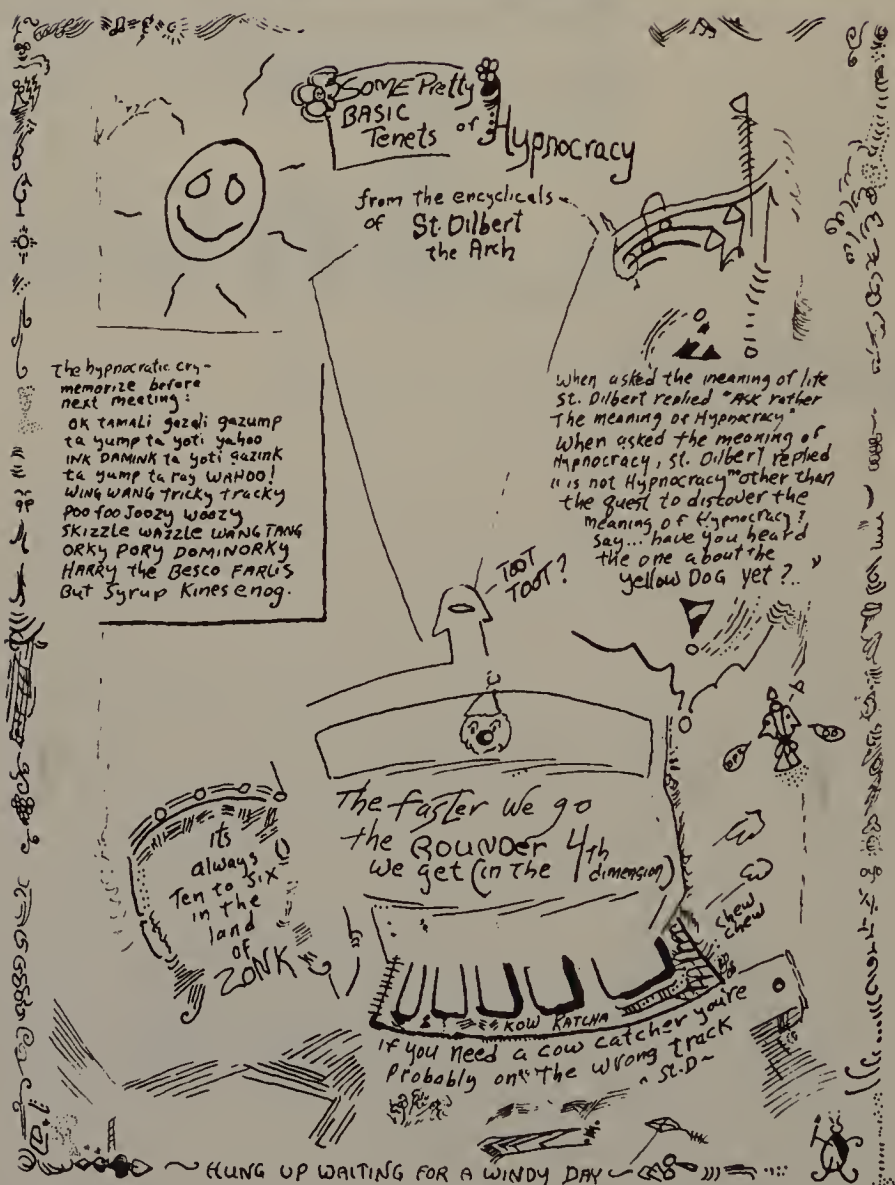 SOME Pretty
BASIC
Tenets of
Hypnocracy
from the encyclicals
of St. Dilbert
the Arch
The hypnocratic cry-
memorize before
next meeting:
OK TAMALI gazali gazump
ta yump ta yoti yahoo
INK DAMINK ta yoti gazink
ta yump ta ray WAHOO!
WING WANG tricky tracky
POO foo Joozy woozy
SKIZZLE WAZZLE WANG TANG
ORKY PORY DOMINORKY
HARRY the BESCO FARLIS
But Syrup Kines enog.
When asked the meaning of life
St. Dilbert replied "Ask rather
The meaning of Hypnocracy"
When asked the meaning of
Hypnocracy, St. Dilbert replied
"is not Hypnocracy other than
the quest to discover the
meaning of Hypnocracy?
Say... have you heard
the one about the
yellow DOG yet?.."
TOOT
TOOT?
The faster we go
the ROUNDER
we get (in the 4th
dimension)
its
always
Ten to Six
in the
land
of
ZONK
chew
chew
KOW KATCHA
if you need a cow catcher you're
Probably on the wrong track
~ St. D ~
HUNG UP WAITING FOR A WINDY DAY